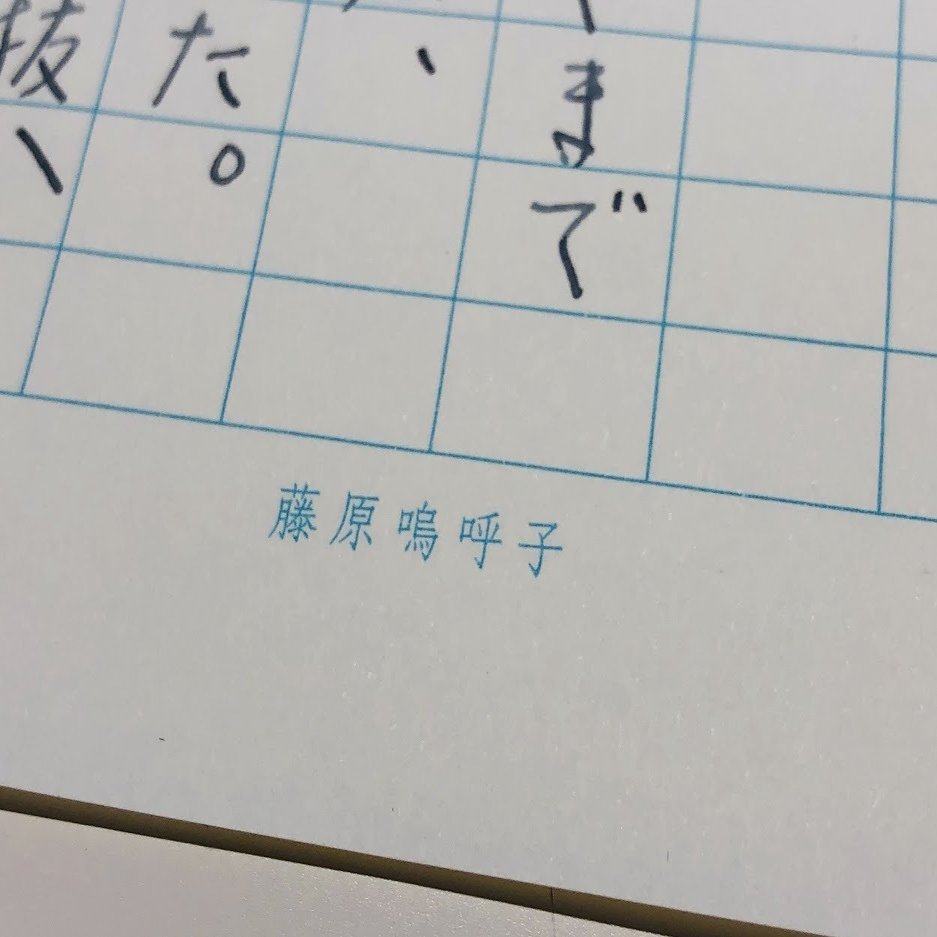 まで
、
た。
抜
藤原嗚呼子